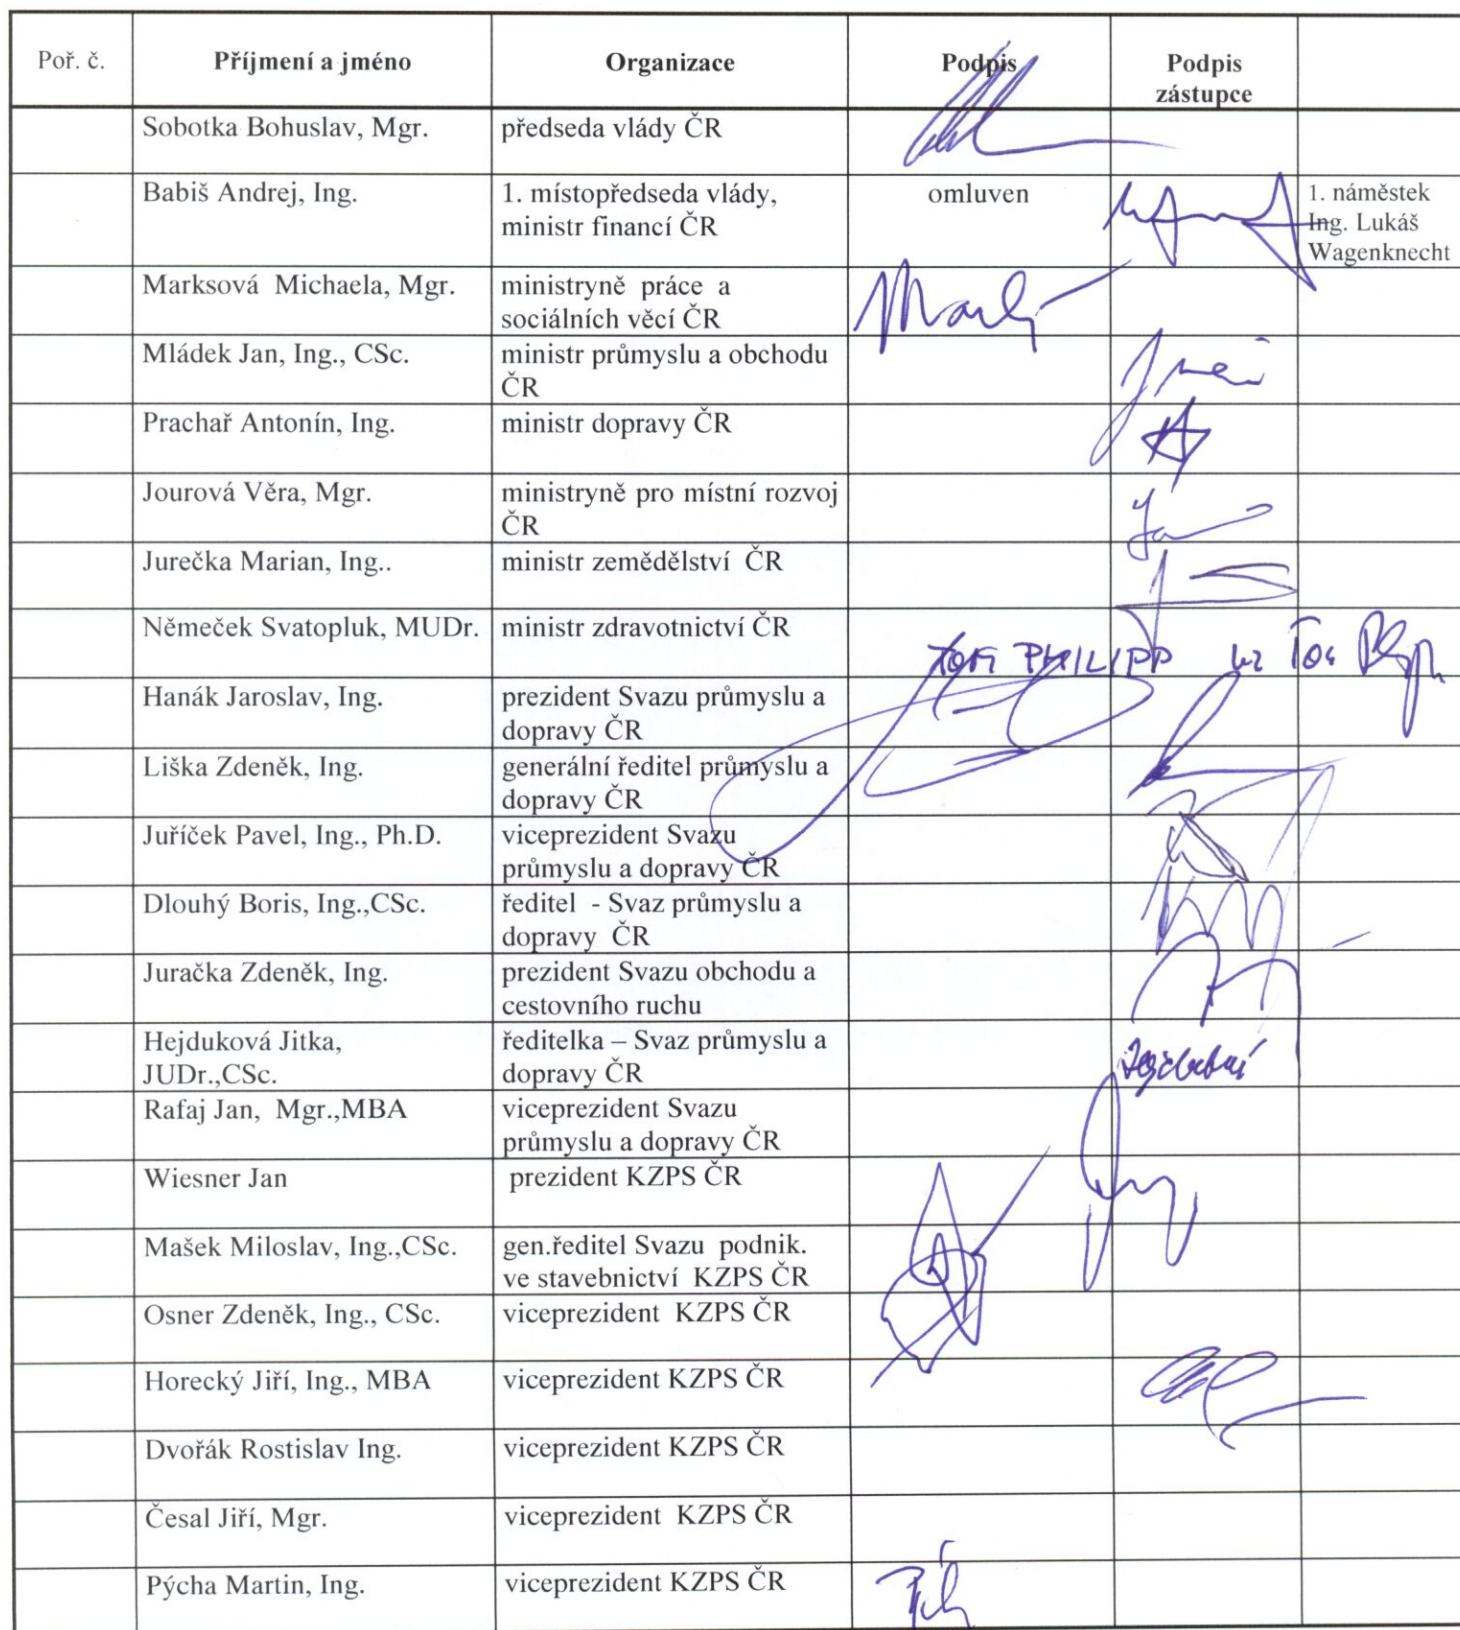 Poř. č.
Příjmení a jméno
Organizace
Podpis
Podpis
zástupce
Sobotka Bohuslav, Mgr.
předseda vlády ČR
Babiš Andrej, Ing.
1. místopředseda vlády,
ministr financí ČR
omluven
1. náměstek
Ing. Lukáš
Wagenknecht
Marksová Michaela, Mgr.
ministryně práce a
sociálních věcí ČR
Mládek Jan, Ing., CSc.
ministr průmyslu a obchodu
ČR
Prachař Antonín, Ing.
ministr dopravy ČR
Jourová Věra, Mgr.
ministryně pro místní rozvoj
ČR
Jurečka Marian, Ing..
ministr zemědělství ČR
Němeček Svatopluk, MUDr.
ministr zdravotnictví ČR
TOM PHILIPP
Hanák Jaroslav, Ing.
prezident Svazu průmyslu a
dopravy ČR
Liška Zdeněk, Ing.
generální ředitel průmyslu a
dopravy ČR
Juříček Pavel, Ing., Ph.D.
viceprezident Svazu
průmyslu a dopravy ČR
Dlouhý Boris, Ing.,CSc.
ředitel - Svaz průmyslu a
dopravy ČR
Juračka Zdeněk, Ing.
prezident Svazu obchodu a
cestovního ruchu
Hejduková Jitka,
JUDr.,CSc.
ředitelka – Svaz průmyslu a
dopravy ČR
Rafaj Jan, Mgr.,MBA
viceprezident Svazu
průmyslu a dopravy ČR
Wiesner Jan
prezident KZPS ČR
Mašek Miloslav, Ing.,CSc.
gen.ředitel Svazu podnik.
ve stavebnictví KZPS ČR
Osner Zdeněk, Ing., CSc.
viceprezident KZPS ČR
Horecký Jiří, Ing., MBA
viceprezident KZPS ČR
Dvořák Rostislav Ing.
viceprezident KZPS ČR
Česal Jiří, Mgr.
viceprezident KZPS ČR
Pýcha Martin, Ing.
viceprezident KZPS ČR